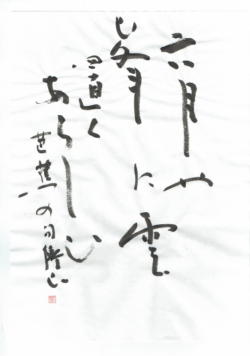 六月や
峯に雲
置く
あらし山
芭蕉の句 勝山